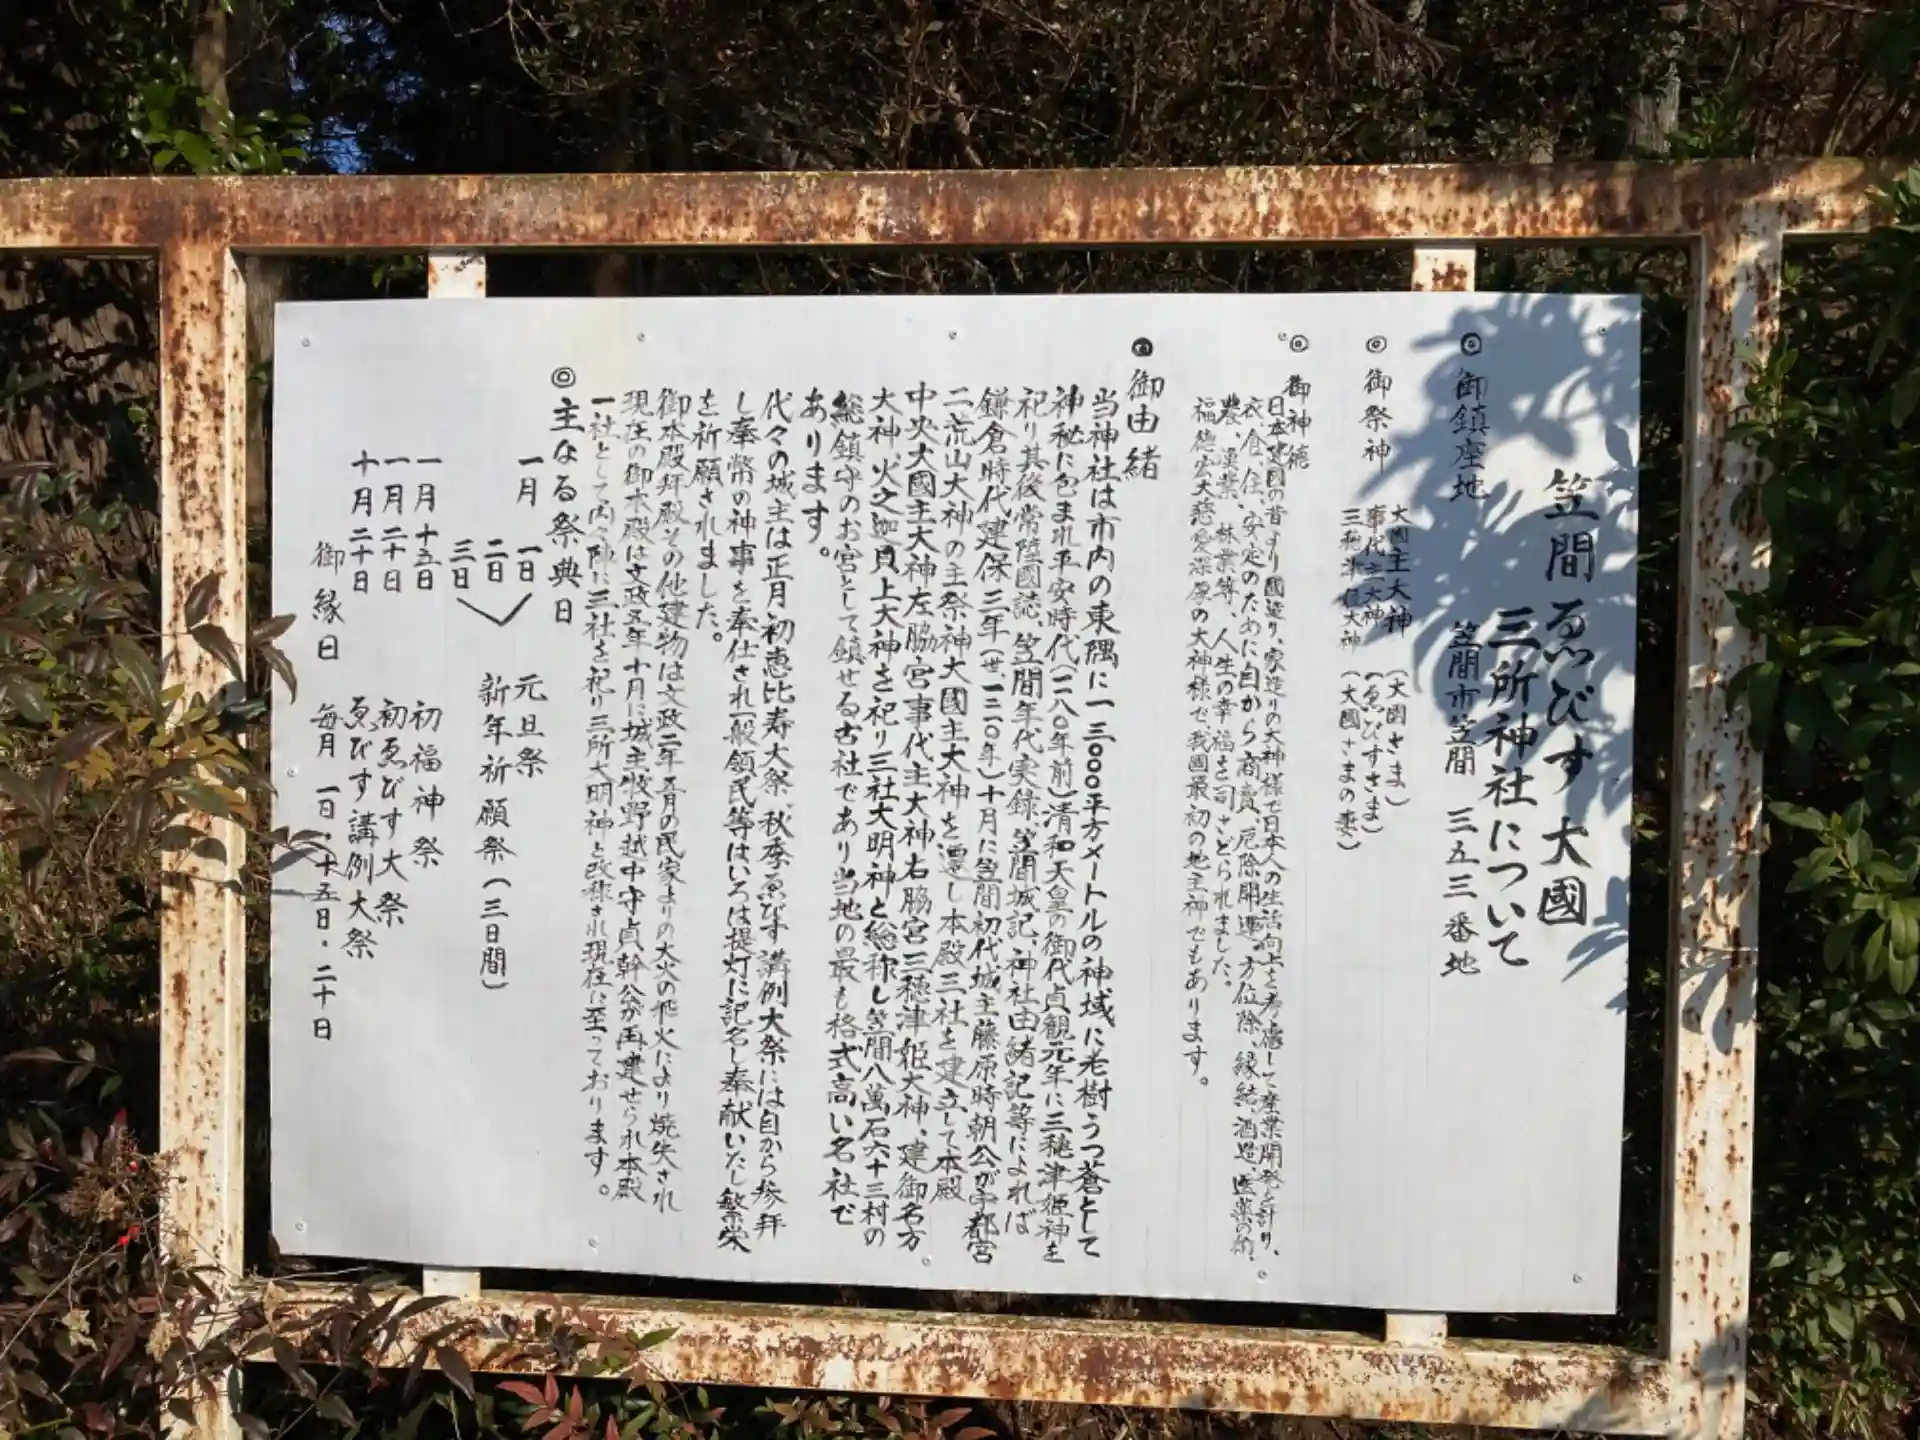 笠間ゑびす大國
三所神社について
◎御鎮座地 笠間市笠間 三五三番地
◎御祭神 大國主大神 (大国さま)
事代主大神 (ゑびすさま)
三穂津姫大神 (大國さまの妻)
◎御神徳
日本建国の昔より國造り、家造りの大神様で日本人の生活向上を考慮して産業開発を計り、
衣、食、住、安定のために自から商売、厄除開運、方位除、縁結、酒造、医薬の術、
農、漁業、林業等、人生の幸福を司さどられました。
福徳宏大慈愛深厚の大神様で我國最初の地主神でもあります。
◎御由緒
当神社は市内の東隅に一三〇〇〇平方メートルの神域に老樹うつ蒼として
神秘に包まれ平安時代(一一八〇年前)清和天皇の御代貞観元年に三穂津姫神を
祀り其後常陸國誌、笠間年代実録、笠間城記、神社由緒記等によれば
鎌倉時代建保三年(世、一二一〇年)十月に笠間初代城主藤原時朝公が宇都宮
二荒山大神の主祭神大國主大神を遷し本殿三社を建立して本殿
中央大國主大神左脇宮事代主大神右脇宮三穂津姫大神、建御名方
大神、火之迦具土大神を祀り三社大明神と総称し笠間八萬石六十三村の
総鎮守のお宮として鎮せる古社であり当地の最も格式高い名社で
あります。
代々の城主は正月初恵比寿大祭、秋季ゑびす講例大祭には自から参拝
し奉幣の神事を奉仕され一般領民等はいろは提灯に記名し奉献いたし繁栄
を祈願されました。
御本殿拝殿その他建物は文政二年五月の民家よりの大火の飛火により焼失され
現在の御本殿は文政五年十月に城主牧野越中守貞幹公が再建せられ本殿
一社として内々陣に三社を祀り三所大明神と改称され現在に至っております。
◎主なる祭典日
一月 一日 元旦祭
二日 新年祈願祭(三日間)
三日
一月十五日 初福神祭
一月二十日 初ゑびす大祭
十月二十日 ゑびす講例大祭
御縁日 毎月 一日・十五日・二十日